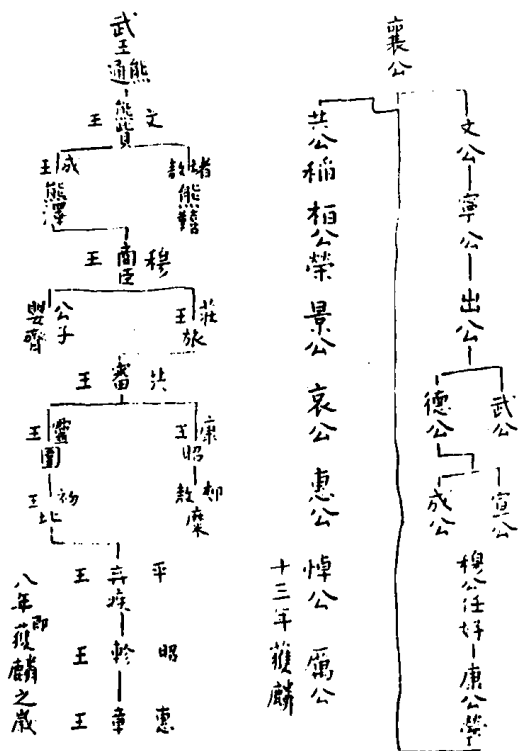 襄公
文公
寧公
出公
武公
德公
宣公
成公
穆公任好
康公罃
共公稻
桓公榮
景公
哀公
惠公
悼公
厲公
十三年獲麟
武王熊通
文王熊貲
堵敖熊囏
成王熊
穆王商臣
莊王旅
公子嬰齊
共王審
康王昭
郟敖麇
靈王圍
初王比
平王弃疾
昭王軫
惠王章
八年即獲麟之歲